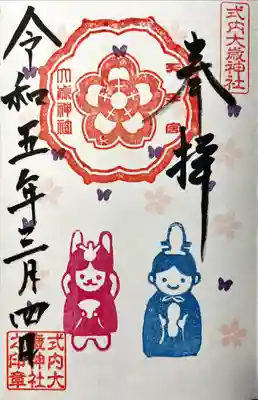 式内大歳神社
奉拝
大歳神社
令和五年三月四日
式内大
歳神社
之印章